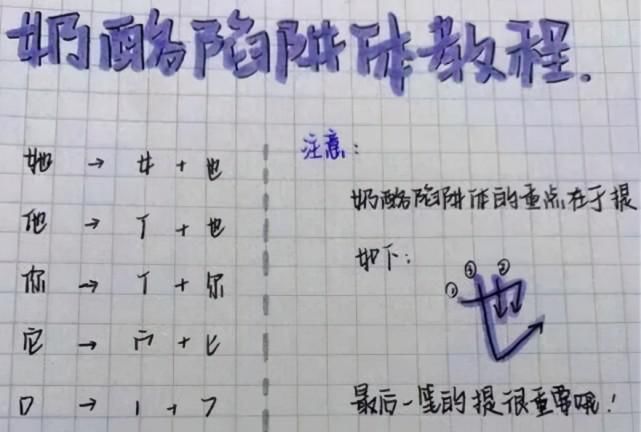 奶酪陷阱体教程.
她 → 女 + 也
他 → 亻 + 也
你 → 亻 + 尔
它 → 宀 + 匕
口 → 丨 + 𠃌
注意:
奶酪陷阱体的重点在于提
如下:
① ③ ②
也
最后一笔的提很重要哦!